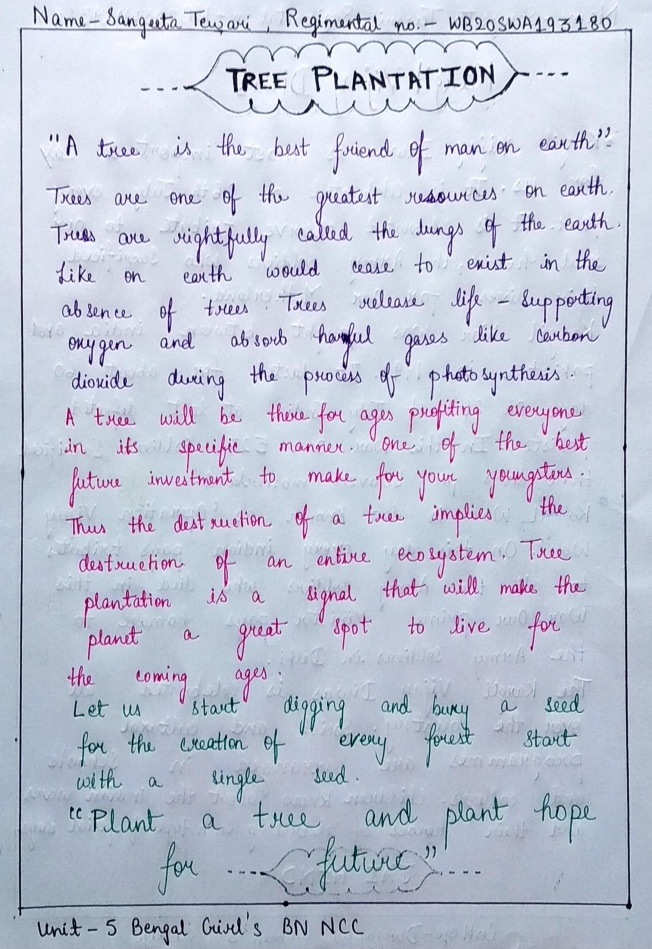 Name - Sangeeta Tewari, Regimental no. - WB20SWA193180
TREE PLANTATION
"A tree is the best friend of man on earth"
Trees are one of the greatest resources on earth.
Trees are rightfully called the lungs of the earth.
Like on earth would cease to exist in the
absence of trees. Trees release life - supporting
oxygen and absorb harmful gases like carbon
dioxide during the process of photosynthesis.
A tree will be there for ages profiting everyone
in its specific manner. One of the best
future investment to make for your youngsters.
Thus the destruction of a tree implies the
destruction of an entire ecosystem. Tree
plantation is a signal that will make the
planet a great spot to live for
the coming ages.
Let us start digging and bury a seed
for the creation of every forest start
with a single seed.
"Plant a tree and plant hope
for future"
Unit - 5 Bengal Girl's BN NCC